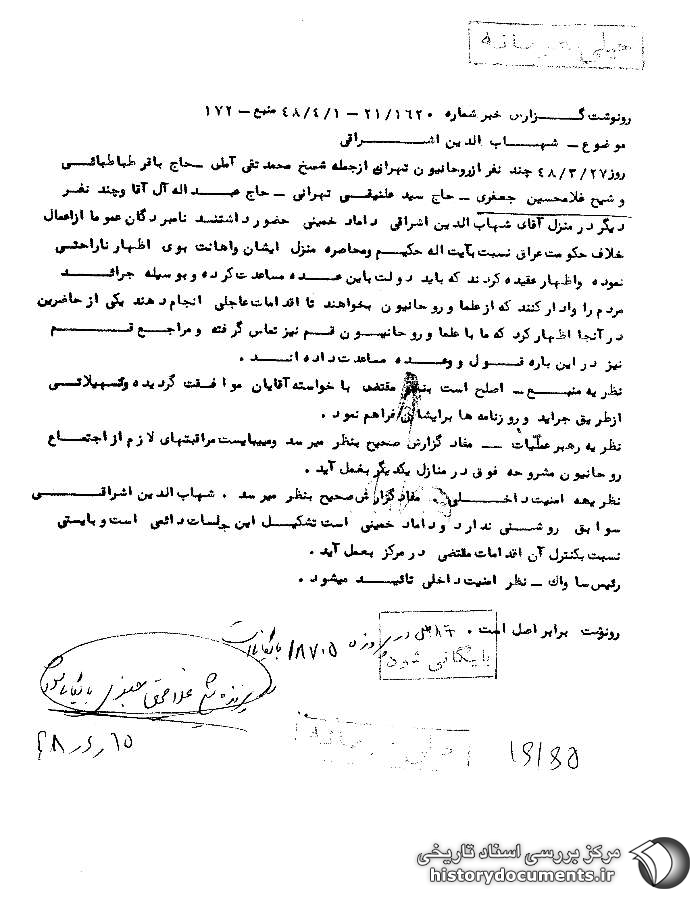 خیلی محرمانه
رونوشت گـــزارش خبر شماره ۲۱/۱۶۲۰ – ۴۸/۴/۱ منبع – ۱۷۲
موضوع – شهـــاب الدین اشـــراقی
روز ۴۸/۳/۲۷ چند نفر از روحانیون تهران ازجمله شیخ محمد تقی آملی – حاج باقر طباطبائی
و شیخ غلامحسین جعفری – حاج سید علینقی تهرانی – حاج عبداله آل آقا و چند نفر
دیگر در منزل آقای شهاب الدین اشراقی داماد خمینی حضور داشتند نامبردگان عموما ازاعمال
خلاف حکومت عراق نسبت بآیت اله حکیم ومحاصره منزل ایشان واهانت بوی اظهار ناراحتی
نموده واظهار عقیده کردند که باید دولت باین عده مساعدت کرده و بوسیله جرائد
مردم را وادار کنند که از علما و روحانیون بخواهند تا اقدامات عاجلی انجام دهند یکی از حاضرین
در آنجا اظهار کرد که ما با علما و روحانیون قم نیز تماس گرفته و مراجع قم
نیز در این باره قول و وعده مساعدت داده اند .
نظریه منبع – اصلح است بنحو مقتضی با خواسته آقایان موافقت گردیده وتسهیلاتی
ازطریق جراید و روزنامه ها برایشان فراهم نمود .
نظریه رهبر عملیات – مفاد گزارش صحیح بنظر میرسد ومیبایست مراقبتهای لازم از اجتماع
روحانیون مشروحه فوق در منازل یکدیگر بعمل آید .
نظریه امنیت داخلی . مفاد گزارش صحیح بنظر میرسد . شهاب الدین اشراقی
سوابق روشنی ندارد و داماد خمینی است تشکیل این جلسات دائمی است و بایستی
نسبت بکنترل آن اقدامات مقتضی در مرکز بعمل آید .
رئیس ساواک – نظر امنیت داخلی تائید میشود .
رونوشت برابر اصل است .
در پرونده ۱۸۷۰۵
بایگانی شود
خیلی محرمانه
۱۶/۴۵
مرکز بررسی اسناد تاریخی
historydocuments.ir